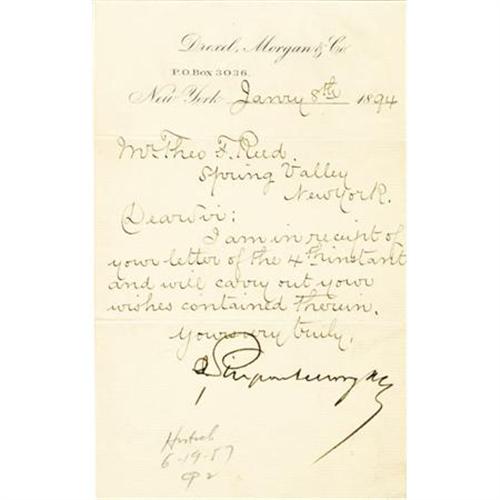 Drexel, Morgan & Co.
P.O. Box 3036.
New York Janry 8th 1894
Mr Theo F. Reed.
Spring Valley
New York.
Dear Sir:
I am in receipt of
your letter of the 4th instant
and will carry out your
wishes contained therein.
Yours very truly,
J. Pierpont Morgan
6-19-57